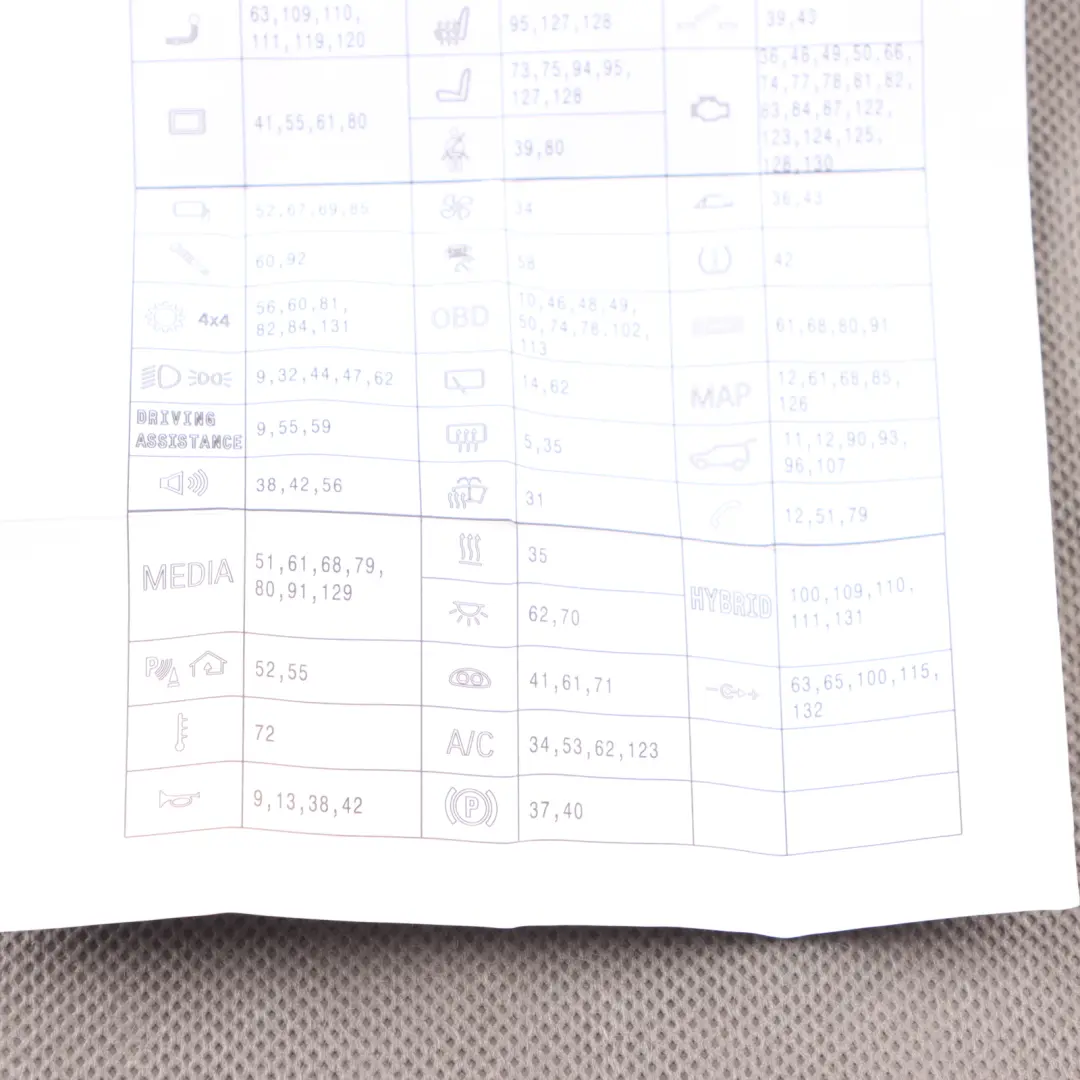 63,109,110,
111,119,120
41,55,61,80
52,67,69,85
60,92
4x4
56,60,81,
82,84,131
9,32,44,47,62
DRIVING
ASSISTANCE
9,55,59
38,42,56
MEDIA
51,61,68,79,
80,91,129
P
52,55
72
9,13,38,42
95,127,128
73,75,94,95,
127,128
39,80
34
58
OBD
10,46,48,49,
50,74,78,102,
113
14,62
5,35
31
35
62,70
41,61,71
A/C
34,53,62,123
P
37,40
39,43
36,46,49,50,66,
74,77,78,81,82,
83,84,87,122,
123,124,125,
128,130
36,43
42
61,68,80,91
MAP
12,61,68,85,
126
11,12,90,93,
96,107
12,51,79
HYBRID
100,109,110,
111,131
63,65,100,115,
132